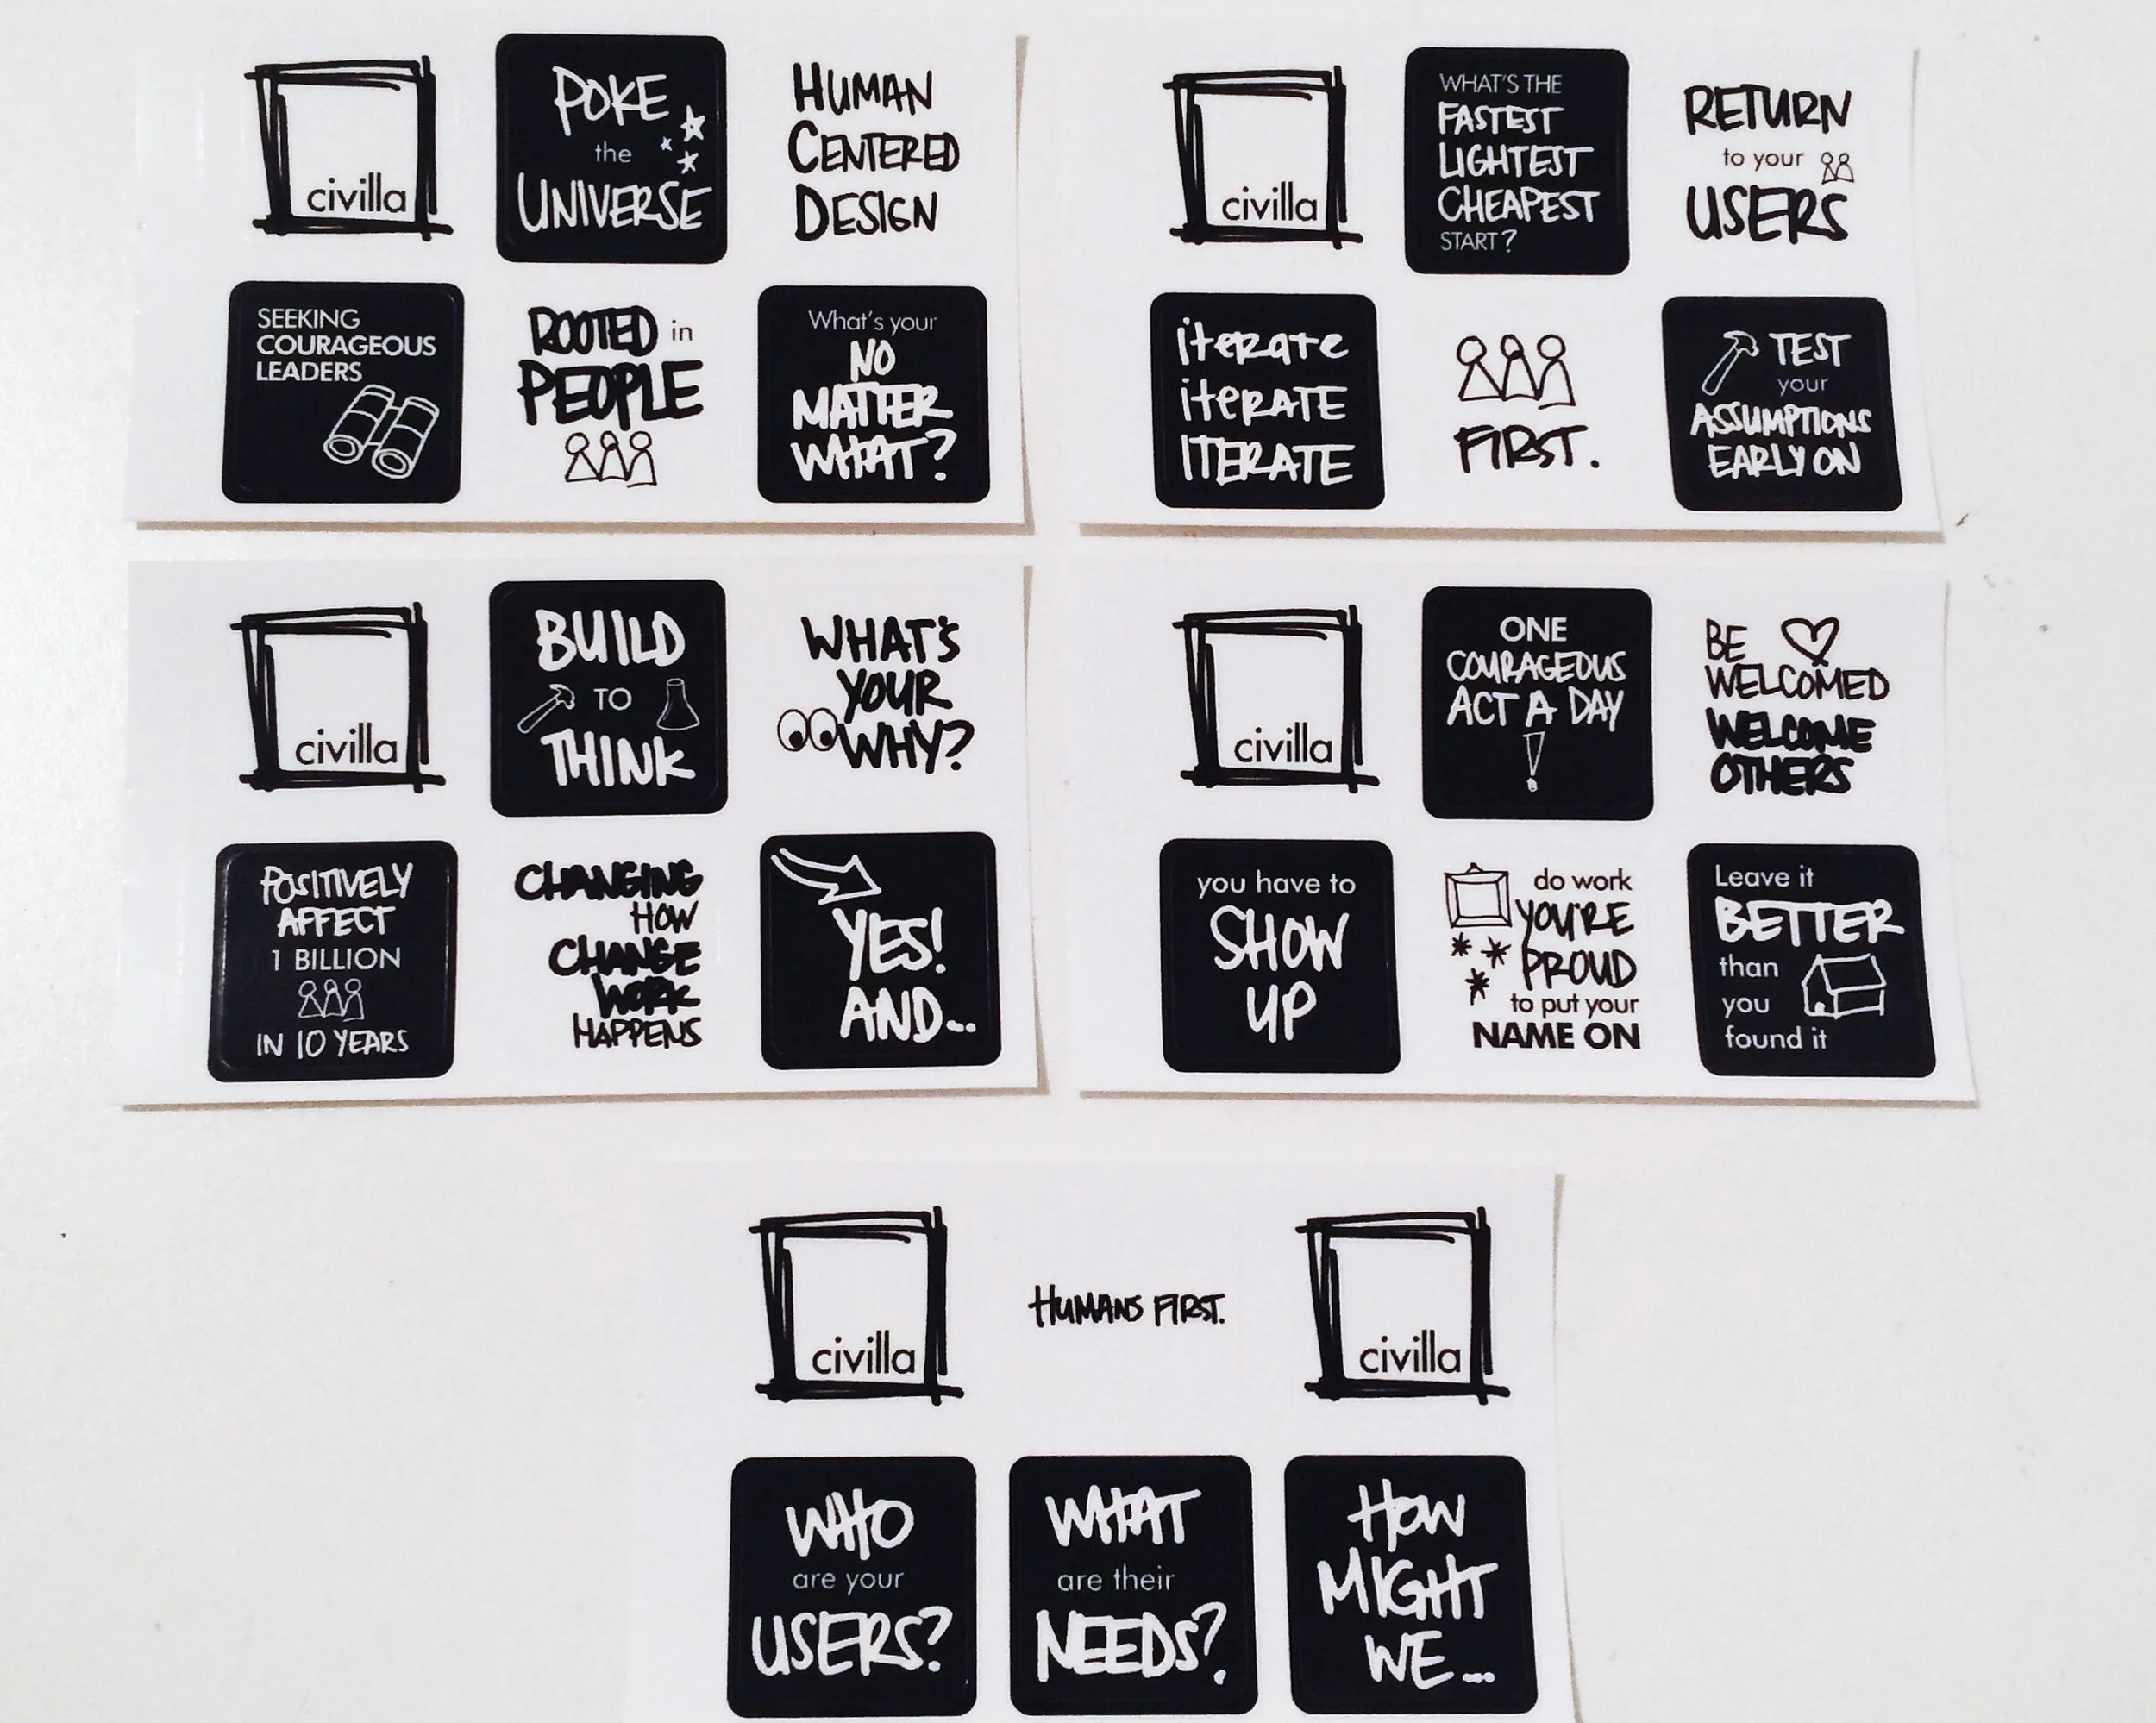 civilla
POKE
the
UNIVERSE
HUMAN
CENTERED
DESIGN
SEEKING
COURAGEOUS
LEADERS
ROOTED in
PEOPLE
What's your
NO
MATTER
WHAT?
civilla
WHAT'S THE
FASTEST
LIGHTEST
CHEAPEST
START?
RETURN
to your
USERS
iterate
iterATE
ITERATE
FIRST.
TEST
your
ASSUMPTIONS
EARLY ON
civilla
BUILD
TO
THINK
WHAT'S
YOUR
WHY?
POSITIVELY
AFFECT
1 BILLION
IN 10 YEARS
CHANGING
HOW
CHANGE
WORK
HAPPENS
YES!
AND...
civilla
ONE
COURAGEOUS
ACT A DAY
!
BE
WELCOMED
WELCOME
OTHERS
you have to
SHOW
UP
do work
YOU'RE
PROUD
to put your
NAME ON
Leave it
BETTER
than
you
found it
civilla
HUMANS FIRST.
civilla
WHO
are your
USERS?
WHAT
are their
NEEDS?
HOW
MIGHT
WE...